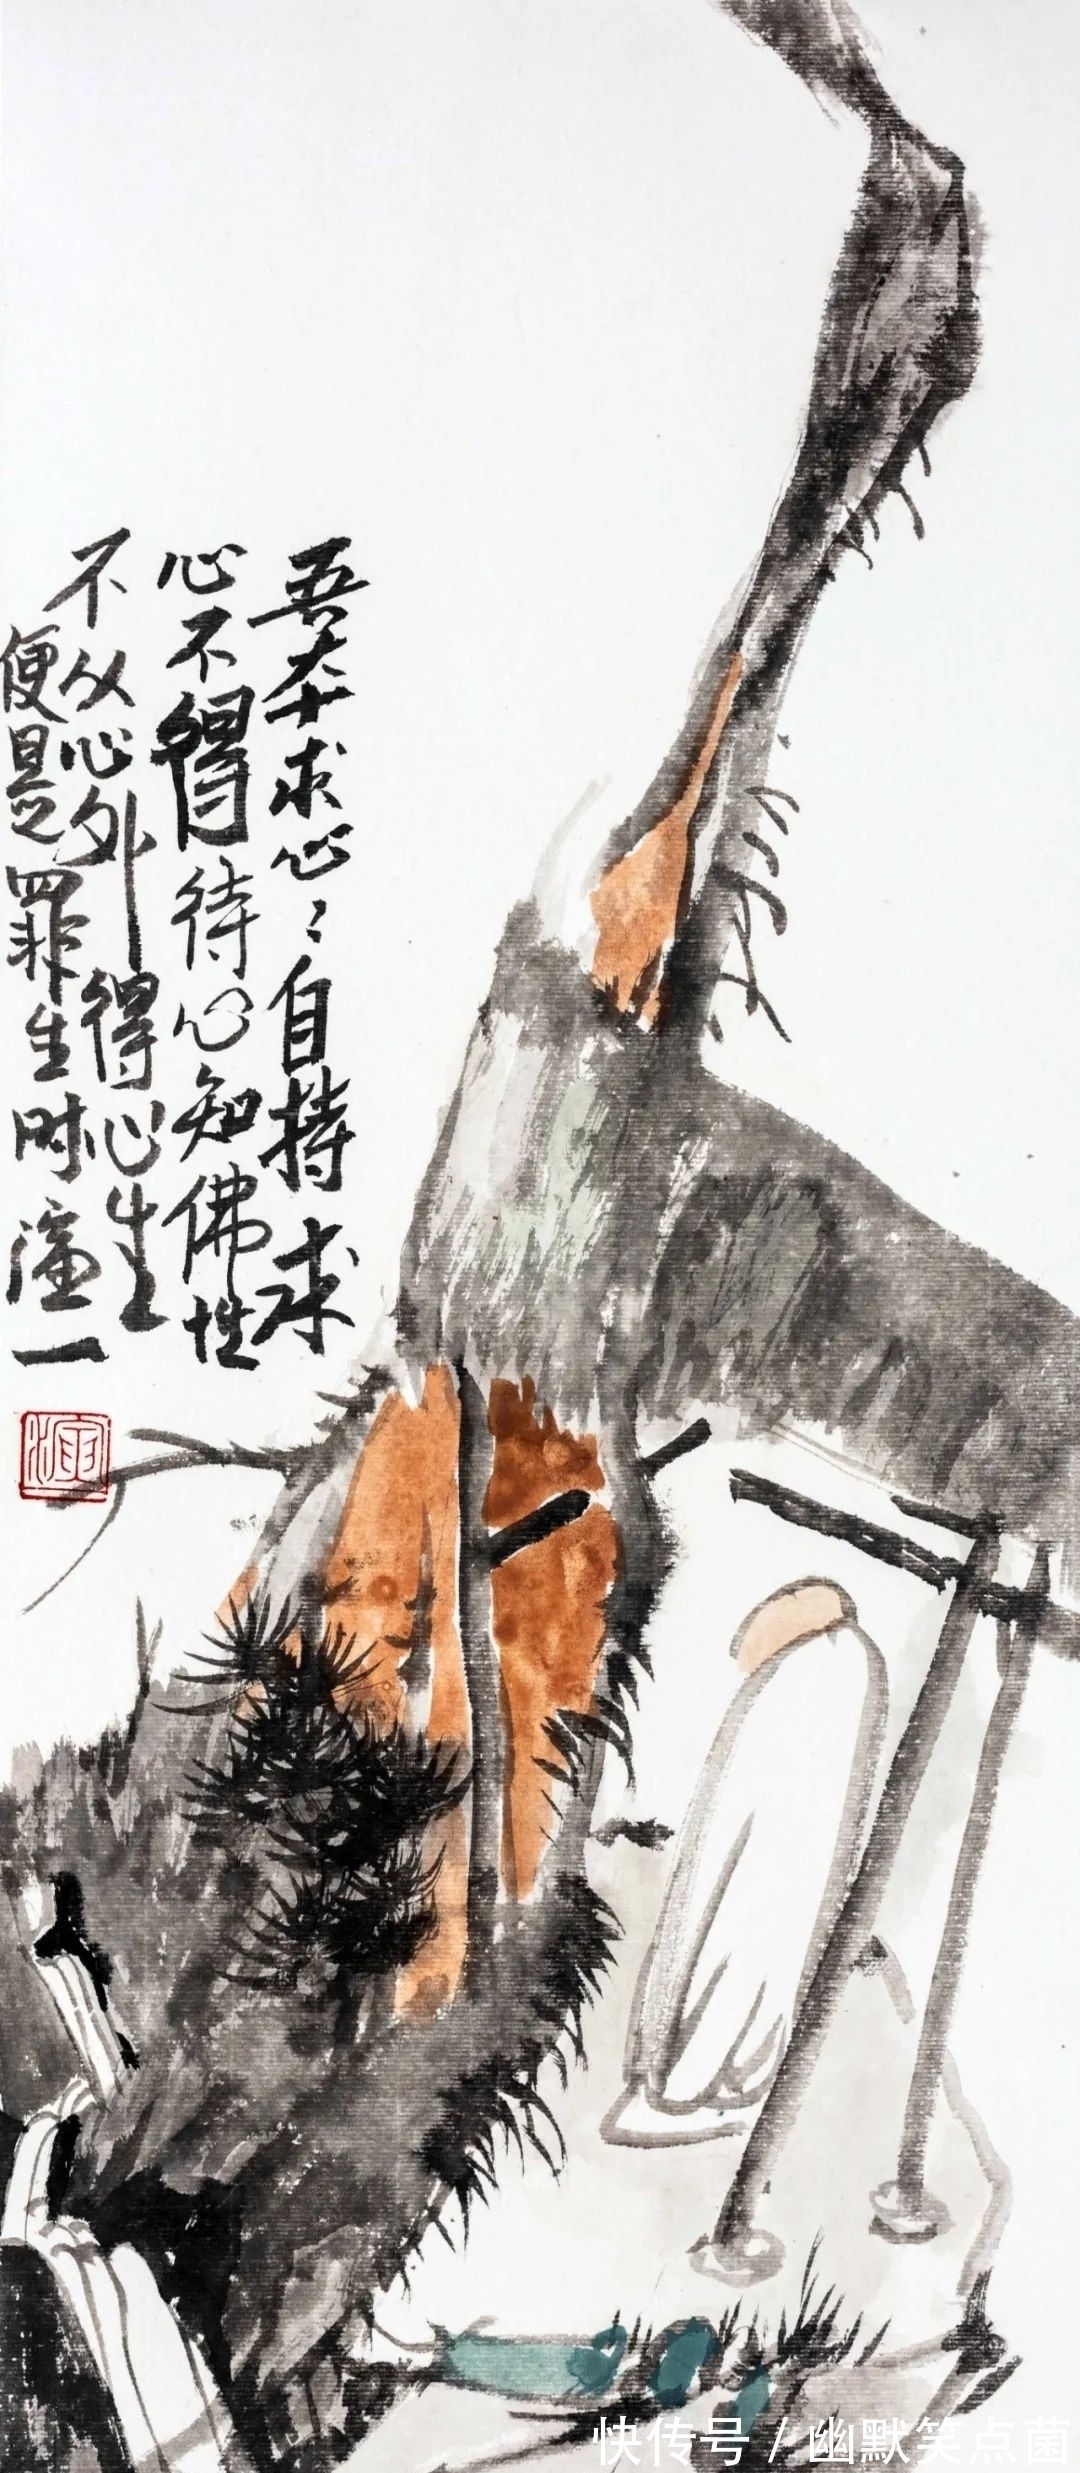 吾本求心〻自持求
心不得待心知佛性
不从心外得心生
便是罪生时 濡一
快传号 / 幽默笑点菌